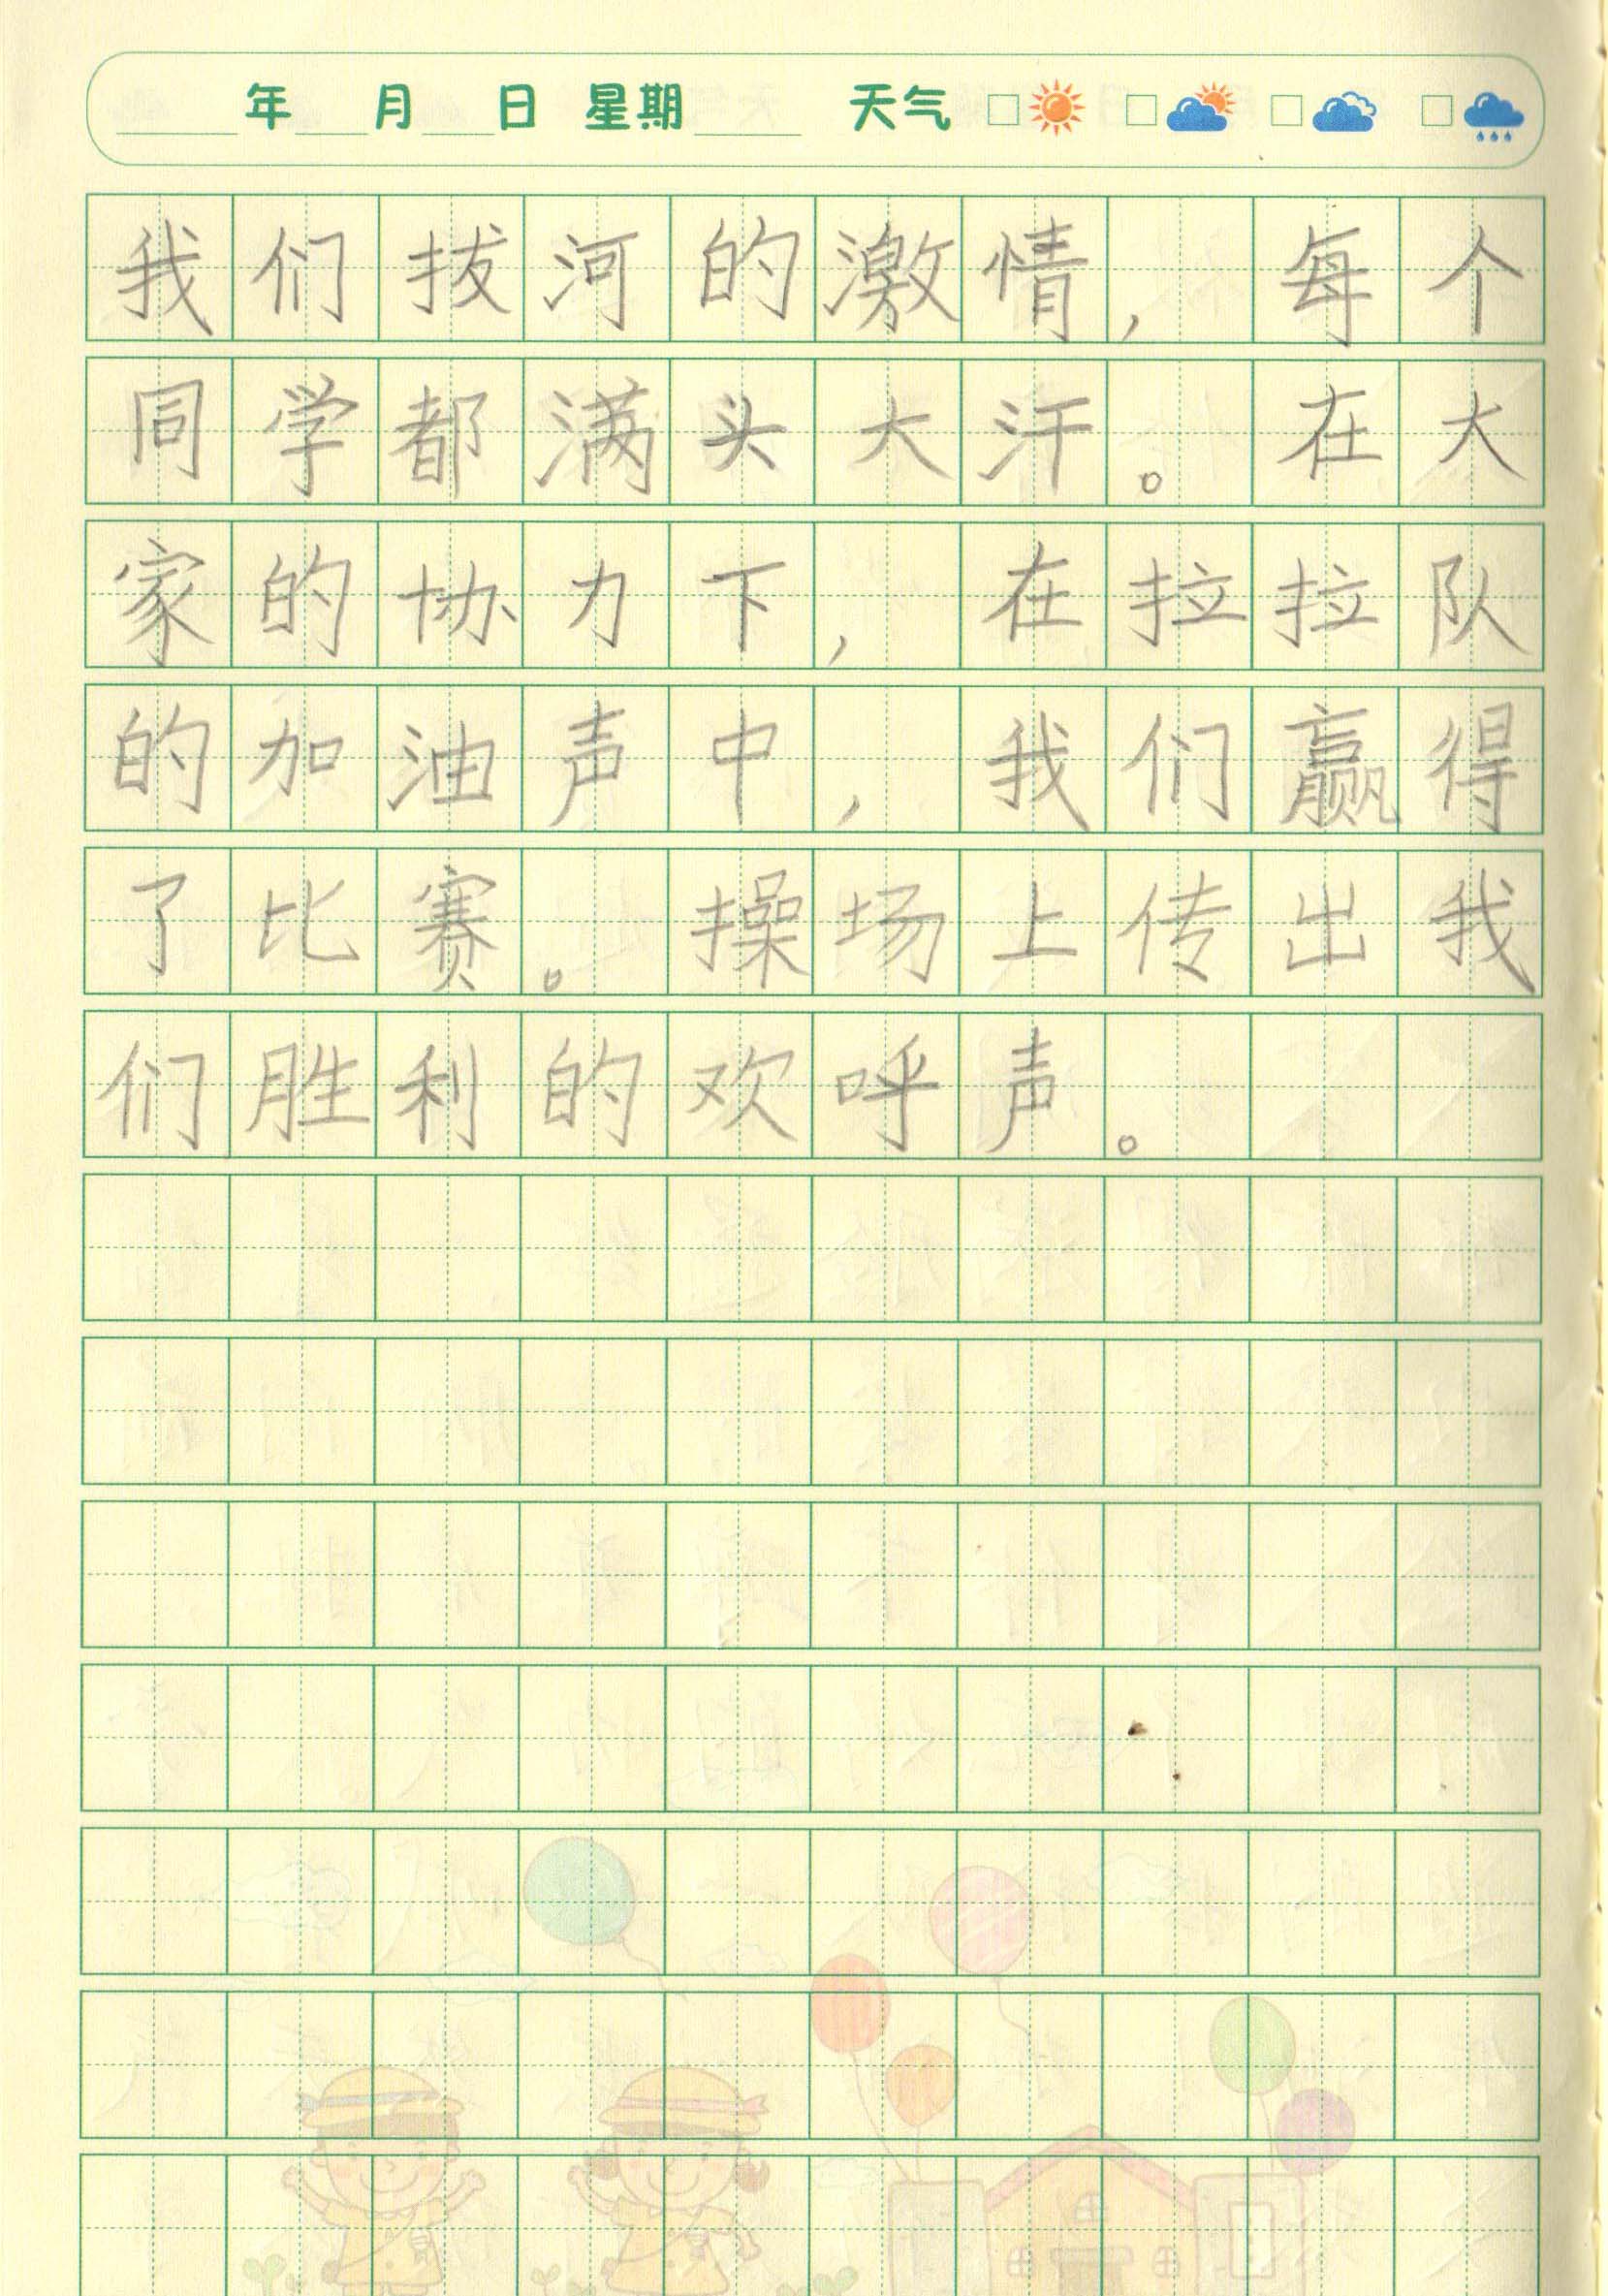 年 月 日 星期 天气
我们拔河的激情，每个
同学都满头大汗。在大
家的协力下，在拉拉队
的加油声中，我们赢得
了比赛。操场上传出我
们胜利的欢呼声。